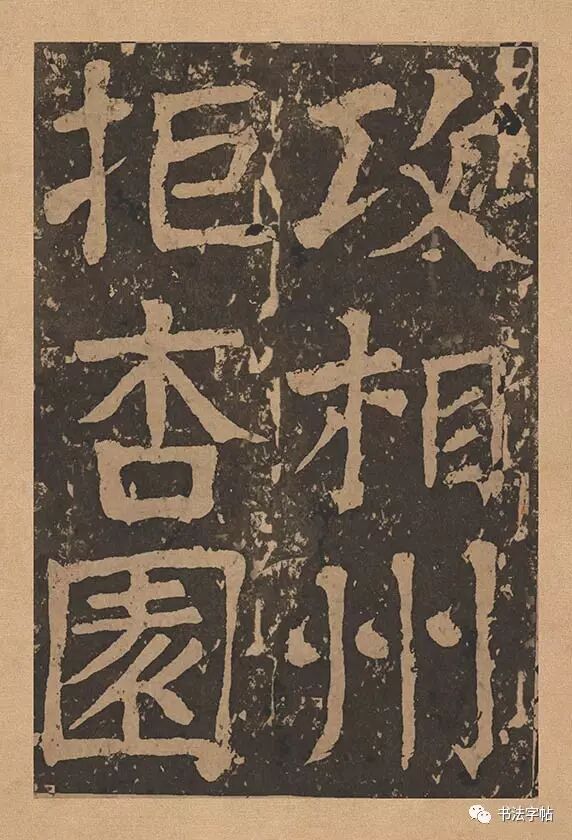 攻相州
拒杏園
书法字帖